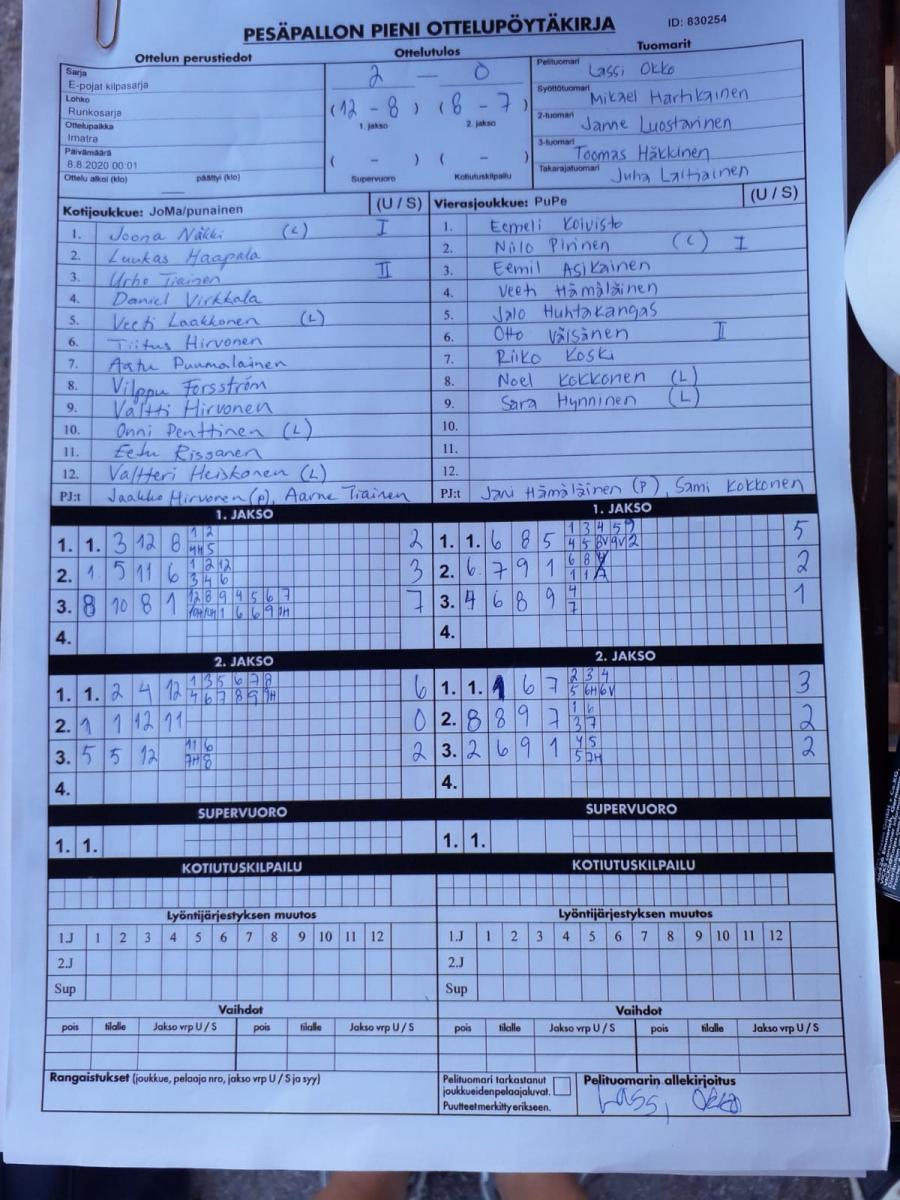 PESÄPALLON PIENI OTTELUPÖYTÄKIRJA
ID: 830254
Ottelun perustiedot
Ottelutulos
Tuomarit
Sarja
E-pojat kilpasarja
Lohko
Runkosarja
Ottelupaikka
Imatra
Päivämäärä
8.8.2020 00:01
Ottelu alkoi (klo) päättyi (klo)
2 — 0
(12 - 8) (8 - 7)
1. jakso 2. jakso
( - ) ( - )
Supervuoro Kotiutuskilpailu
Pelituomari Lassi Okko
Syöttötuomari Mikael Hartikainen
2-tuomari Janne Luostarinen
3-tuomari Toomas Häkkinen
Takarajatuomari Juha Laitiainen
Kotijoukkue: JoMa/punainen (U / S)
1. Joona Näkki (L) I
2. Luukas Haapala
3. Urho Tiainen II
4. Daniel Virkkala
5. Veeti Laakkonen (L)
6. Tiitus Hirvonen
7. Aatu Puumalainen
8. Vilppu Forsström
9. Valtti Hirvonen
10. Onni Penttinen (L)
11. Eetu Rissanen
12. Valtteri Heiskonen (L)
PJ:t Jaakko Hirvonen (P), Aarne Tiainen
Vierasjoukkue: PuPe (U / S)
1. Eemeli Koivisto
2. Niilo Pirinen (L) I
3. Eemil Asikainen
4. Veeti Hämäläinen
5. Jalo Huhtakangas
6. Otto Väisänen II
7. Riiko Koski
8. Noel Kokkonen (L)
9. Sara Hynninen (L)
10.
11.
12.
PJ:t Jani Hämäläinen (P), Sami Kokkonen
1. JAKSO
1. 1. 3 12 8 1 2 2
5
2. 1 5 11 6 1 2 12 3
3 4 6
3. 8 10 8 1 12 8 9 4 5 6 7 7
1 6 6 9 1H
4.
1. JAKSO
1. 1. 6 8 5 1 3 4 5 5
4 5 8V 9V 2
2. 6 7 9 1 6 8 2
1 1
3. 4 6 8 9 4 1
7
4.
2. JAKSO
1. 1. 2 4 12 1 3 5 6 7 8 6
4 6 7 8 9 1H
2. 1 1 12 11 0
3. 5 5 12 11 6 2
7H 8
4.
2. JAKSO
1. 1. 1 6 7 2 3 4 3
5 6H 6V
2. 8 8 9 7 1 6 2
3 7
3. 2 6 9 1 4 5 2
5 7H
4.
SUPERVUORO
1. 1.
SUPERVUORO
1. 1.
KOTIUTUSKILPAILU
KOTIUTUSKILPAILU
Lyöntijärjestyksen muutos
1.J 1 2 3 4 5 6 7 8 9 10 11 12
2.J
Sup
Lyöntijärjestyksen muutos
1.J 1 2 3 4 5 6 7 8 9 10 11 12
2.J
Sup
Vaihdot
pois tilalle Jakso vrp U / S pois tilalle Jakso vrp U / S
Vaihdot
pois tilalle Jakso vrp U / S pois tilalle Jakso vrp U / S
Rangaistukset (joukkue, pelaaja nro, jakso vrp U / S ja syy)
Pelituomari tarkastanut
joukkueidenpelaajaluvat.
Puutteet merkitty erikseen.
Pelituomarin allekirjoitus
Lassi Okko